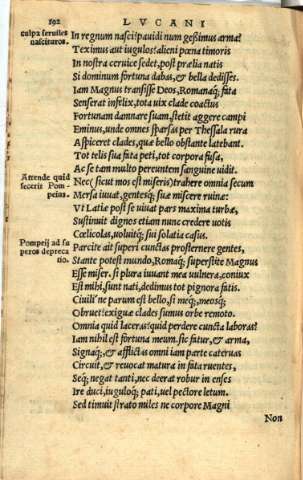 192 LVCANI
culpa seruiles
nascituros.
In regnum nasci? pauidi num gessimus arma?
Teximus aut iugulos? alieni pœna timoris
In nostra ceruice sedet, post prælia natis
Si dominum fortuna dabas, & bella dedisses.
Iam Magnus transisse Deos, Romanaq; fata
Senserat infelix, tota uix clade coactus
Fortunam damnare suam, stetit aggere campi
Eminus, unde omnes sparsas per Thessala rura
Aspiceret clades, quæ bello obstante latebant.
Tot telis sua fata peti, tot corpora fusa,
Ac se tam multo pereuntem sanguine uidit.
Attende quid
fecerit Pom-
peius.
Nec (sicut mos est miseris) trahere omnia secum
Mersa iuuat, gentesq; suæ miscere ruinæ:
Vt Latiæ post se uiuat pars maxima turbæ,
Sustinuit dignos etiam nunc credere uotis
Cœlicolas, uoluitq; sui solatia casus.
Pompeij ad su
peros depreca
tio.
Parcite ait superi cunctas prosternere gentes,
Stante potest mundo, Romaq; superstite Magnus
Esse miser. si plura iuuant mea uulnera, coniux
Est mihi, sunt nati, dedimus tot pignora fatis.
Ciuili ne parum est bello, si meq;, meosq;
Obruet? exiguæ clades sumus orbe remoto.
Omnia quid laceras? quid perdere cuncta laboras?
Iam nihil est fortuna meum. sic fatur, & arma,
Signaq;, & afflictas omni iam parte cateruas
Circuit, & reuocat matura in fata ruentes,
Seq; negat tanti, nec deerat robur in enses
Ire duci, iuguloq; pati, uel pectore letum.
Sed timuit strato miles ne corpore Magni
Non